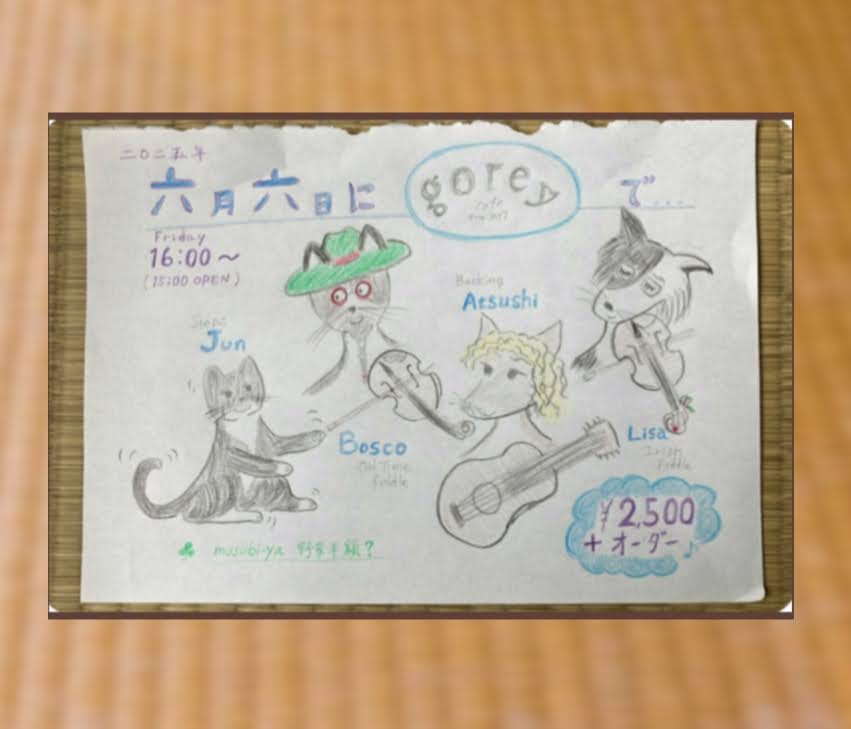 二〇二五年
六月六日に
gore
で...
Friday
16:00〜
(15:00 OPEN)
Backing
Atsushi
Jun
Bosco
Old Time
Fiddle
Lisa
Irish
Fiddle
¥2,500
+オーダー♪
musubi-ya